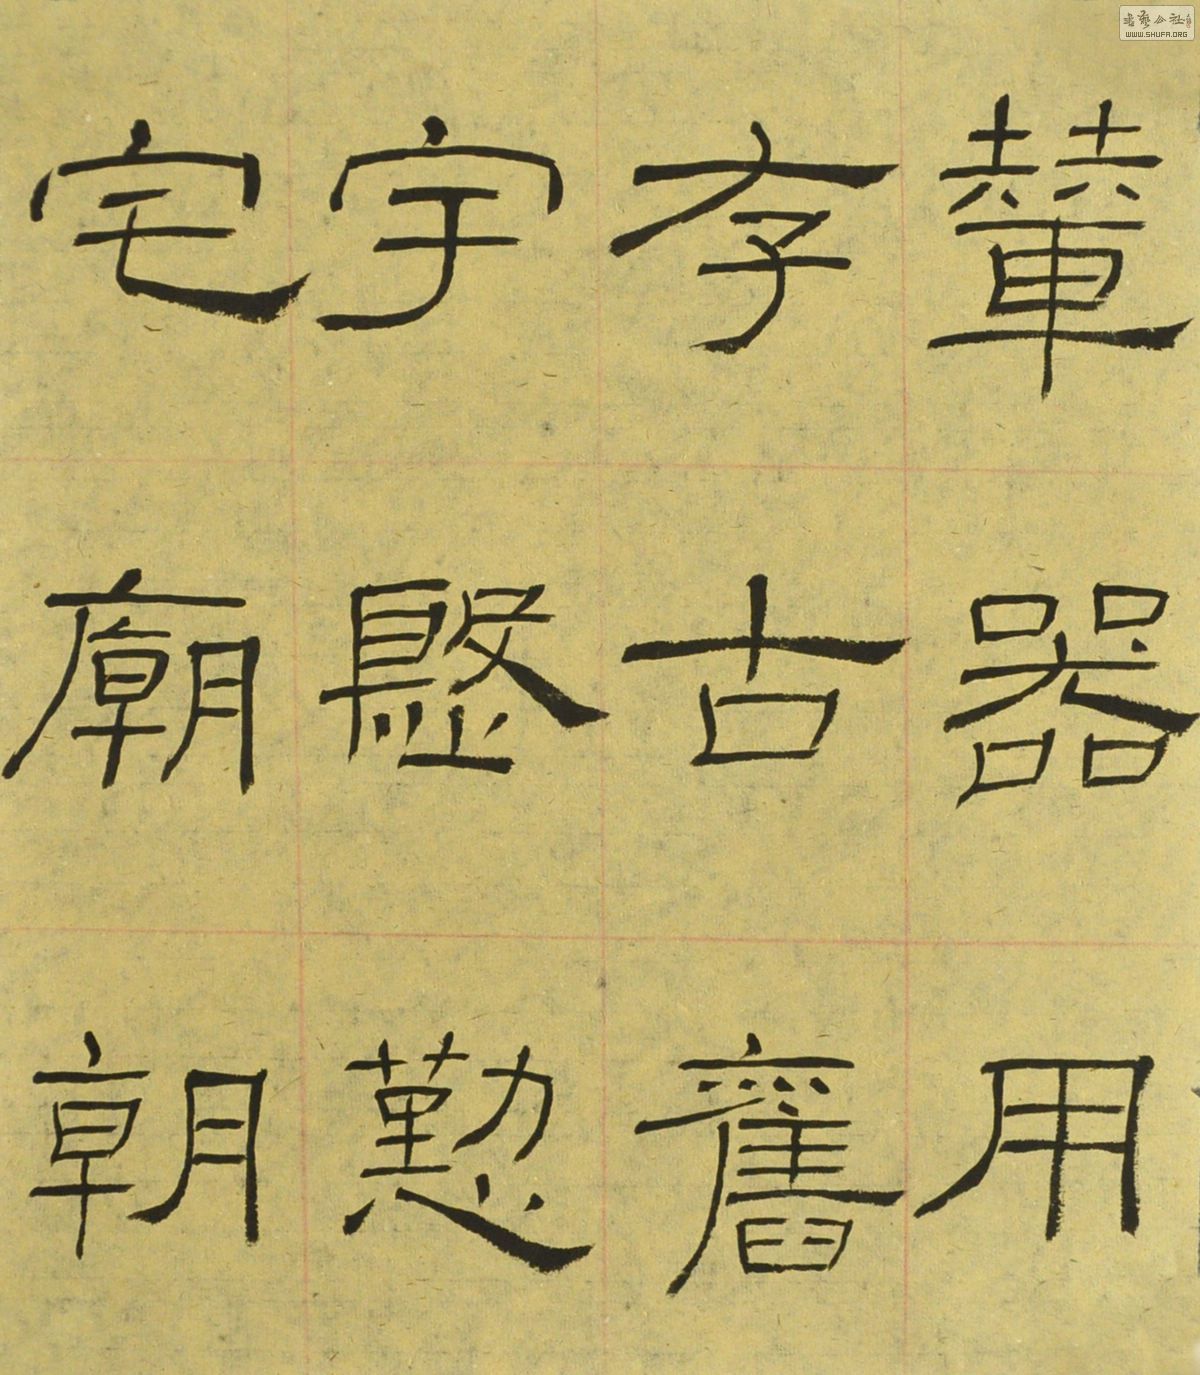 輦器用
存古舊
宇慇懃
宅廟朝
书艺公社
WWW.SHUFA.ORG